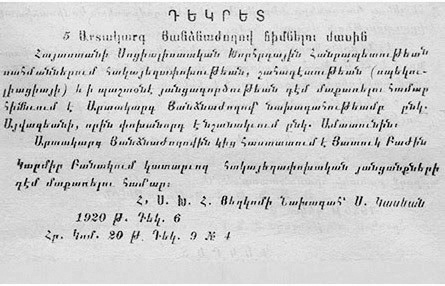 ԴԵԿՐԵՏ
5 Արտակարգ Յանձնաժողով հիմնելու մասին
Հայաստանի Սոցիալիստական Խորհրդային Հանրապետութեան
սահմաններում հակայեղափոխութեան, շահադէտութեան (սպեկու-
լիացիայի) և ի պաշտօնէ յանցագործութեան դէմ մաքառելու համար
հիմնւում է Արտակարգ Յանձնաժողով նախագահութեամբ ընկ.
Այվազեանի, որին փոխանորդ է նշանակւում ընկ. Ամատունին:
Արտակարգ Յանձնաժողովին կից հաստատում է Յատուկ Բաժին
Կարմիր Բանակում կատարւող հակայեղափոխական յանցանքների
դէմ մաքառելու համար:
Հ. Ս. Խ. Հ. Յեղկոմի Նախագահ՝ Ս. Կասեան
1920 Թ. Դեկ. 6
Հր. Կոմ. 20 թ. Դեկ. 9 № 4